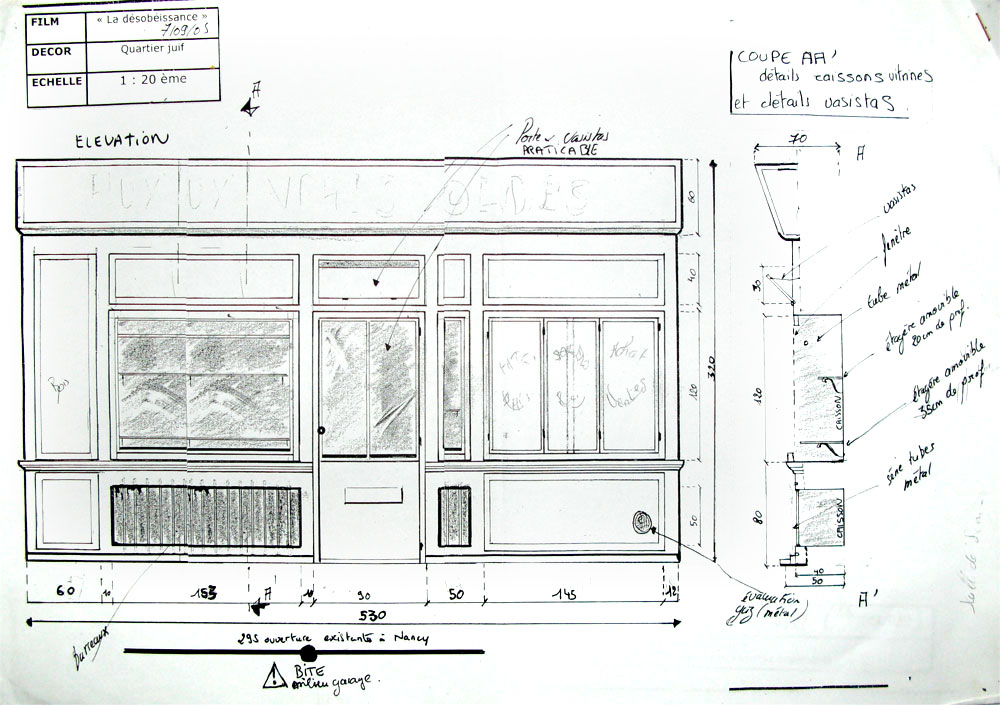 FILM
« La désobéissance »
7/09/05
DECOR
Quartier juif
ECHELLE
1 : 20 ème
A
COUPE AA'
détails caissons vitrines
et détails vasistas.
ELEVATION
Porte + vasistas
PRATICABLE
70
A
60
vasistas
fenêtre
40
30
tube métal
étagère amovible
20cm de prof.
étagère amovible
35cm de prof.
320
120
120
CAISSON
Bois
Achat
Ventes
série tubes
métal
50
80
CAISSON
40
50
A'
60
10
153
A
10
90
50
145
12
530
évacuation
gaz (métal)
Barreaux
295 ouverture existante à Nancy
BITE
milieu garage.